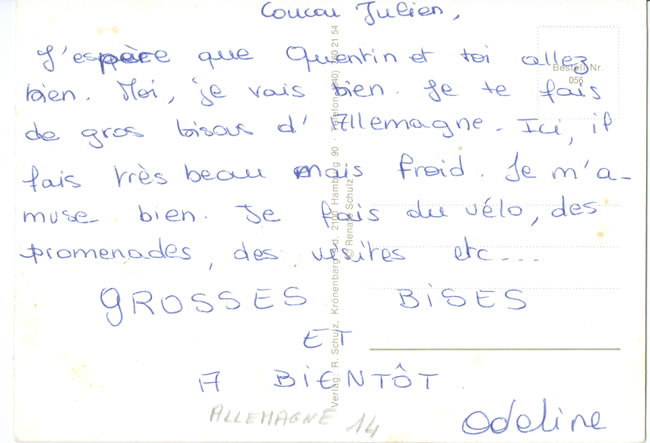 Coucou Julien,
J'espère que Quentin et toi allez
bien. Moi, je vais bien. Je te fais
de gros bisous d'Allemagne. Ici, il
fais très beau mais froid. Je m'a-
muse bien. Je fais du vélo, des
promenades, des visites etc...
GROSSES BISES
ET
A BIENTÔT
Odeline
ALLEMAGNE 14
Bestell-Nr.
056
Verlag: R. Schulz, Krönenbarg
© Renate Schulz